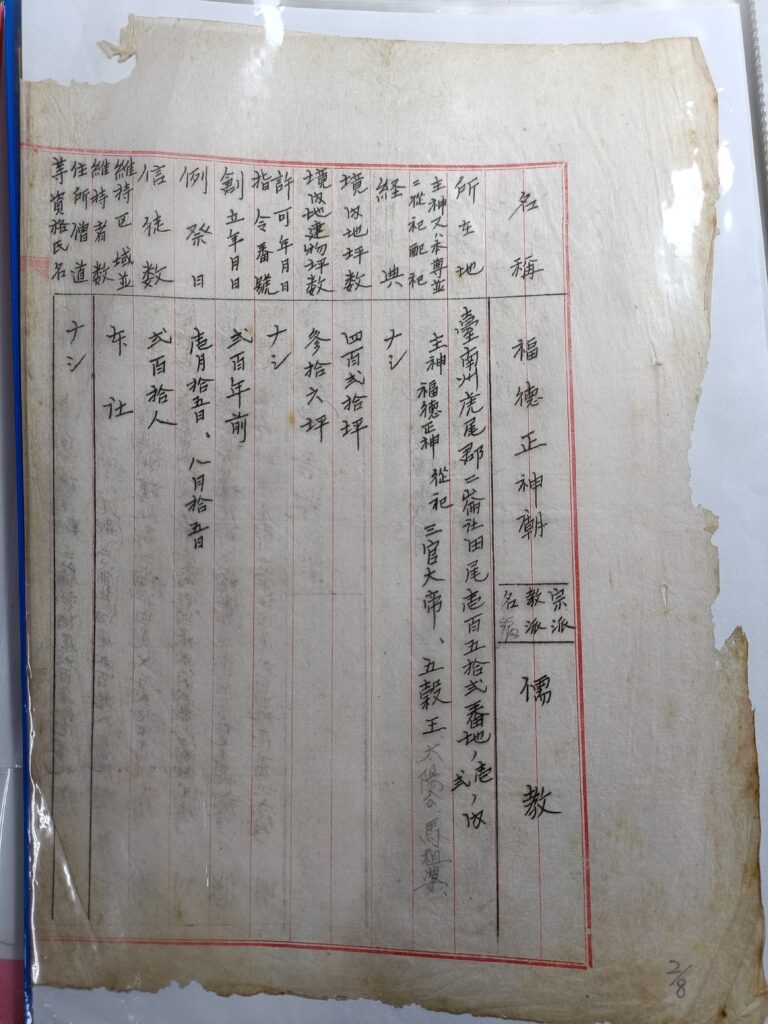 名稱 福德正神廟 宗派教派名號 儒教
所在地 臺南州虎尾郡二崙社田尾壱百五拾弐番地ノ壱ノ弐
主神又ハ本尊並ニ從祀配祀 主神 福德正神 從祀 三官大帝、五穀王、太陽公、馬祖婆、
経典 ナシ
境內地坪數 四百弍拾坪
境內地建物坪數 參拾六坪
許可年月日指令番號 ナシ
創立年月日 弍百年前
例祭日 壱月拾五日、八月拾五日
信徒數 弍百拾人
維持區域並維持者數 社
住所僧道等資格氏名 ナシ
2/8